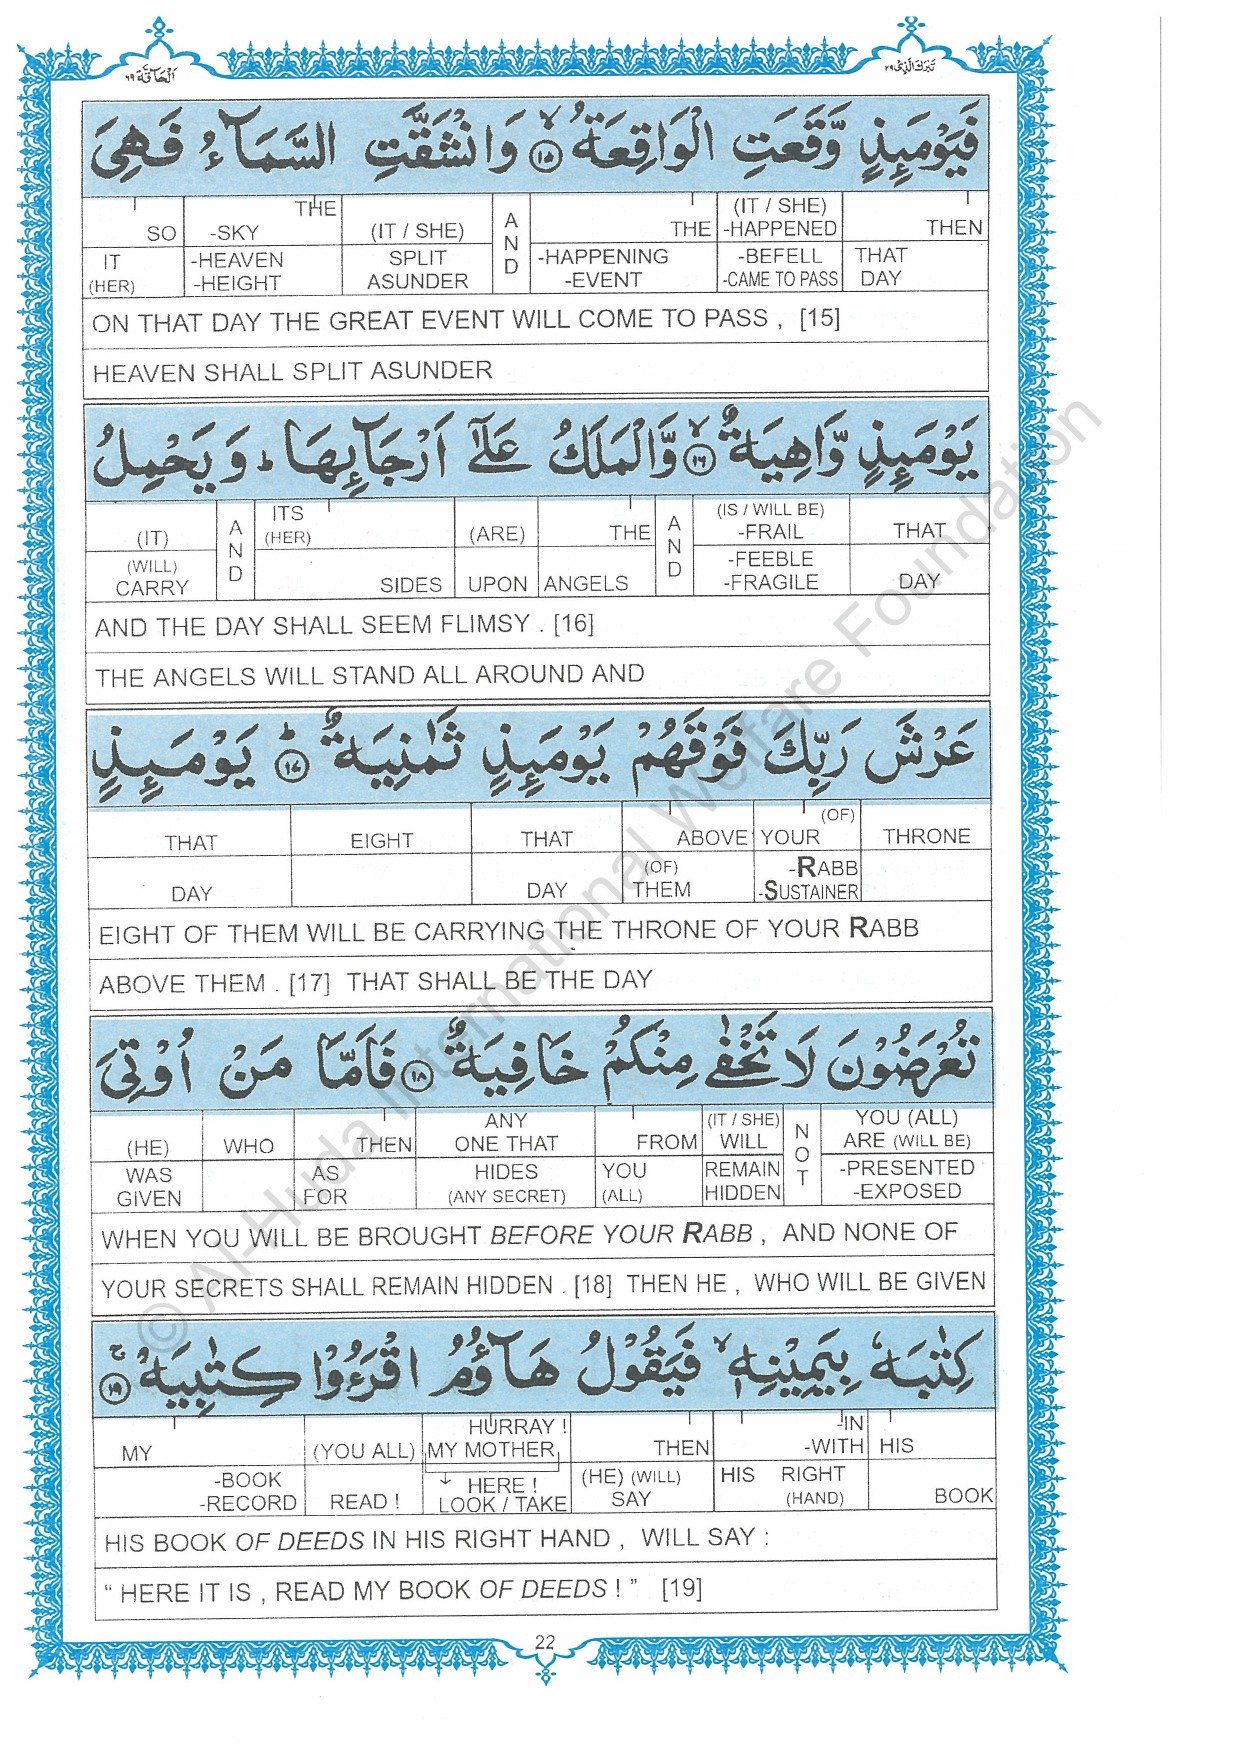 تَبٰرَكَ الَّذِىْ ٢٩
اَلْحَآقَّة ٦٩
فَيَوْمَئِذٍ وَّقَعَتِ الْوَاقِعَةُ ۙ ١٥ وَانْشَقَّتِ السَّمَآءُ فَهِىَ
THEN THAT DAY
(IT / SHE) -HAPPENED -BEFELL -CAME TO PASS
THE -HAPPENING -EVENT
AND
(IT / SHE) SPLIT ASUNDER
THE -SKY -HEAVEN -HEIGHT
SO IT (HER)
ON THAT DAY THE GREAT EVENT WILL COME TO PASS , [15]
HEAVEN SHALL SPLIT ASUNDER
يَوْمَئِذٍ وَّاهِيَةٌ ۙ ١٦ وَّالْمَلَكُ عَلٰٓى اَرْجَآئِهَا ؕ وَيَحْمِلُ
THAT DAY
(IS / WILL BE) -FRAIL -FEEBLE -FRAGILE
AND
THE ANGELS
(ARE) UPON
ITS (HER) SIDES
AND
(IT) (WILL) CARRY
AND THE DAY SHALL SEEM FLIMSY . [16]
THE ANGELS WILL STAND ALL AROUND AND
عَرْشَ رَبِّكَ فَوْقَهُمْ يَوْمَئِذٍ ثَمٰنِيَةٌ ؕ ١٧ يَوْمَئِذٍ
THRONE
(OF) YOUR -RABB -SUSTAINER
ABOVE (OF) THEM
THAT DAY
EIGHT
THAT DAY
EIGHT OF THEM WILL BE CARRYING THE THRONE OF YOUR RABB
ABOVE THEM . [17] THAT SHALL BE THE DAY
تُعْرَضُوْنَ لَا تَخْفٰى مِنْكُمْ خَافِيَةٌ ١٨ فَاَمَّا مَنْ اُوْتِىَ
YOU (ALL) ARE (WILL BE) -PRESENTED -EXPOSED
NOT
(IT / SHE) WILL REMAIN HIDDEN
FROM YOU (ALL)
ANY ONE THAT HIDES (ANY SECRET)
THEN AS FOR
WHO
(HE) WAS GIVEN
WHEN YOU WILL BE BROUGHT BEFORE YOUR RABB , AND NONE OF
YOUR SECRETS SHALL REMAIN HIDDEN . [18] THEN HE , WHO WILL BE GIVEN
كِتٰبَهٗ بِيَمِيْنِهٖ ۙ فَيَقُوْلُ هَآؤُمُ اقْرَءُوْا كِتٰبِيَهْ ۚ ١٩
HIS BOOK
-IN -WITH HIS RIGHT (HAND)
THEN (HE) (WILL) SAY
HURRAY ! MY MOTHER, HERE ! LOOK / TAKE
(YOU ALL) READ !
MY -BOOK -RECORD
HIS BOOK OF DEEDS IN HIS RIGHT HAND , WILL SAY :
“ HERE IT IS , READ MY BOOK OF DEEDS ! ” [19]
22
© Al-Huda International Welfare Foundation